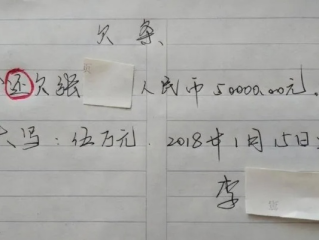 欠条
还欠张 人民币50000.00元.
大写:伍万元. 2018年1月15日
李